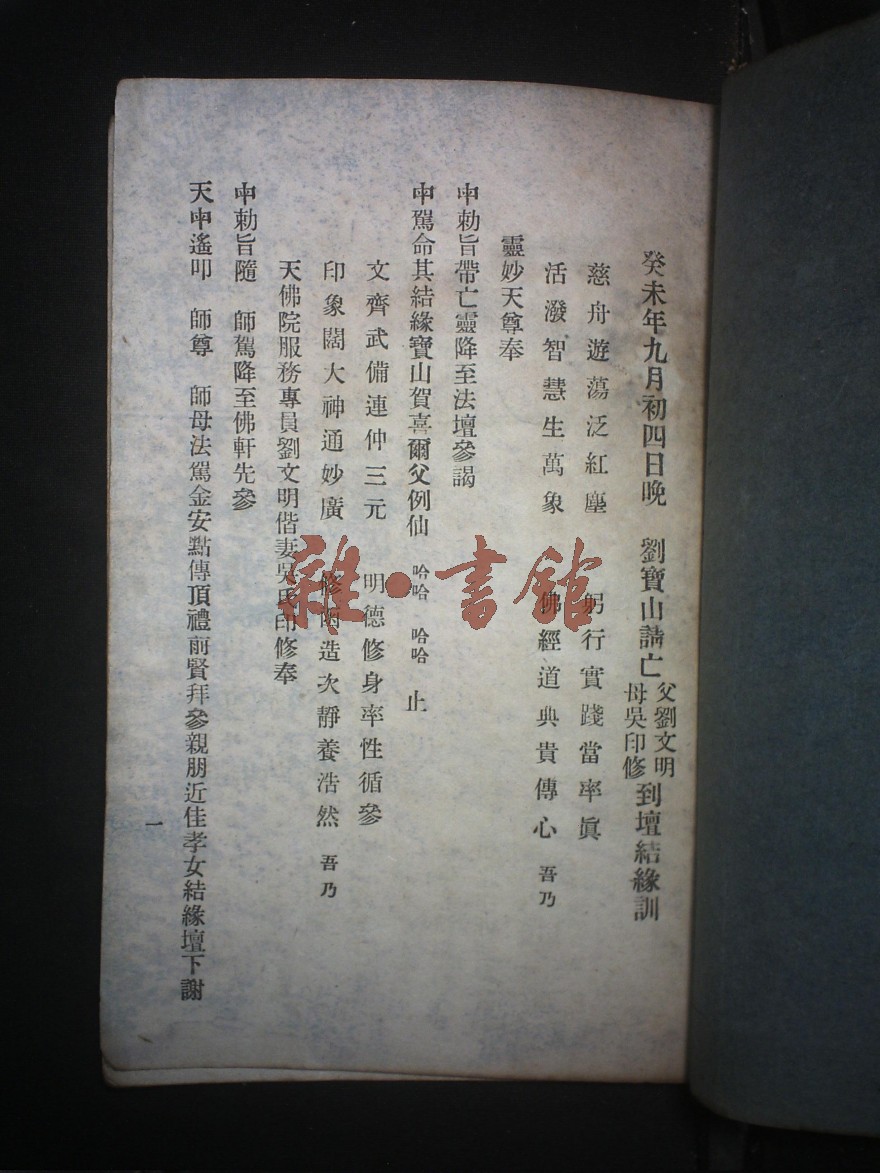 癸未年九月初四日晚　劉寶山請亡父劉文明母吳印修到壇結緣訓
慈舟遊蕩泛紅塵　躬行實踐當率眞
活潑智慧生萬象　佛經道典貴傳心　吾乃
靈妙天尊奉
申勅旨帶亡靈降至法壇參謁
申駕命其結緣寶山賀喜爾父例仙　哈哈　哈哈　止
文齊武備連仲三元　明德修身率性循參
印象闊大神通妙廣　修 造次靜養浩然　吾乃
天佛院服務專員劉文明偕妻吳氏印修奉
申勅旨隨　師駕降至佛軒先參
天申遙叩　師尊　師母法駕金安點傳頂禮前賢拜參親朋近佳孝女結緣壇下謝
一
雜·書館